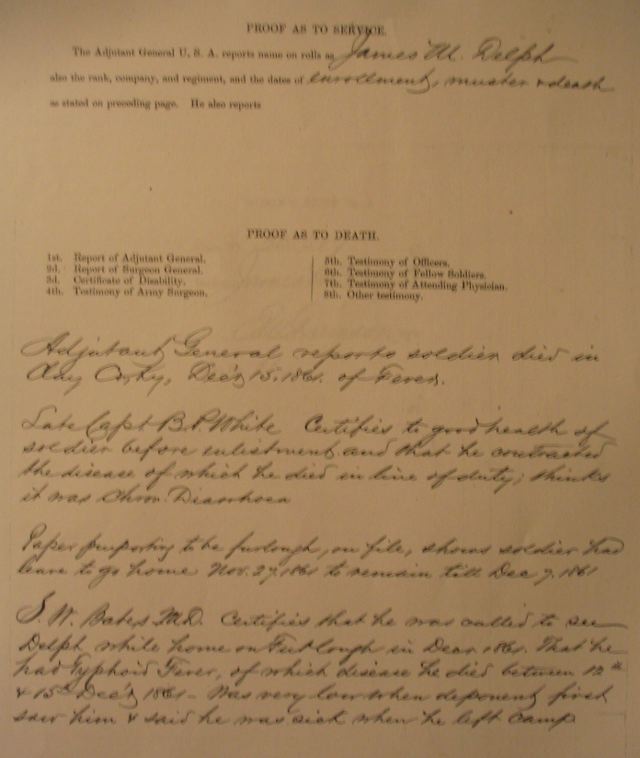 PROOF AS TO SERVICE.
The Adjutant General U. S. A. reports name on rolls as James M. Delph
also the rank, company, and regiment, and the dates of enrollment, muster & death
as stated on preceding page. He also reports
PROOF AS TO DEATH.
1st. Report of Adjutant General.
2d. Report of Surgeon General.
3d. Certificate of Disability.
4th. Testimony of Army Surgeon.
5th. Testimony of Officers.
6th. Testimony of Fellow Soldiers.
7th. Testimony of Attending Physician.
8th. Other testimony.
Adjutant General reports soldier died in
Clay Co, Ky, Dec'r 15, 1861. of Fever.
Late Capt B. P. White Certifies to good health of
soldier before enlistment and that he contracted
the disease of which he died in line of duty; thinks
it was Chron. Diarrhoea
Paper purporting to be furlough, on file, shows soldier had
leave to go home Nov. 27, 1861 to remain till Dec 7. 1861
S. W. Bates M.D. Certifies that he was called to see
Delph while home on Furlough in Decr. 1861. That he
had Typhoid Fever, of which disease he died between 12th
& 15th Dec'r 1861 - Was very low when deponent first
saw him & said he was sick when he left camp